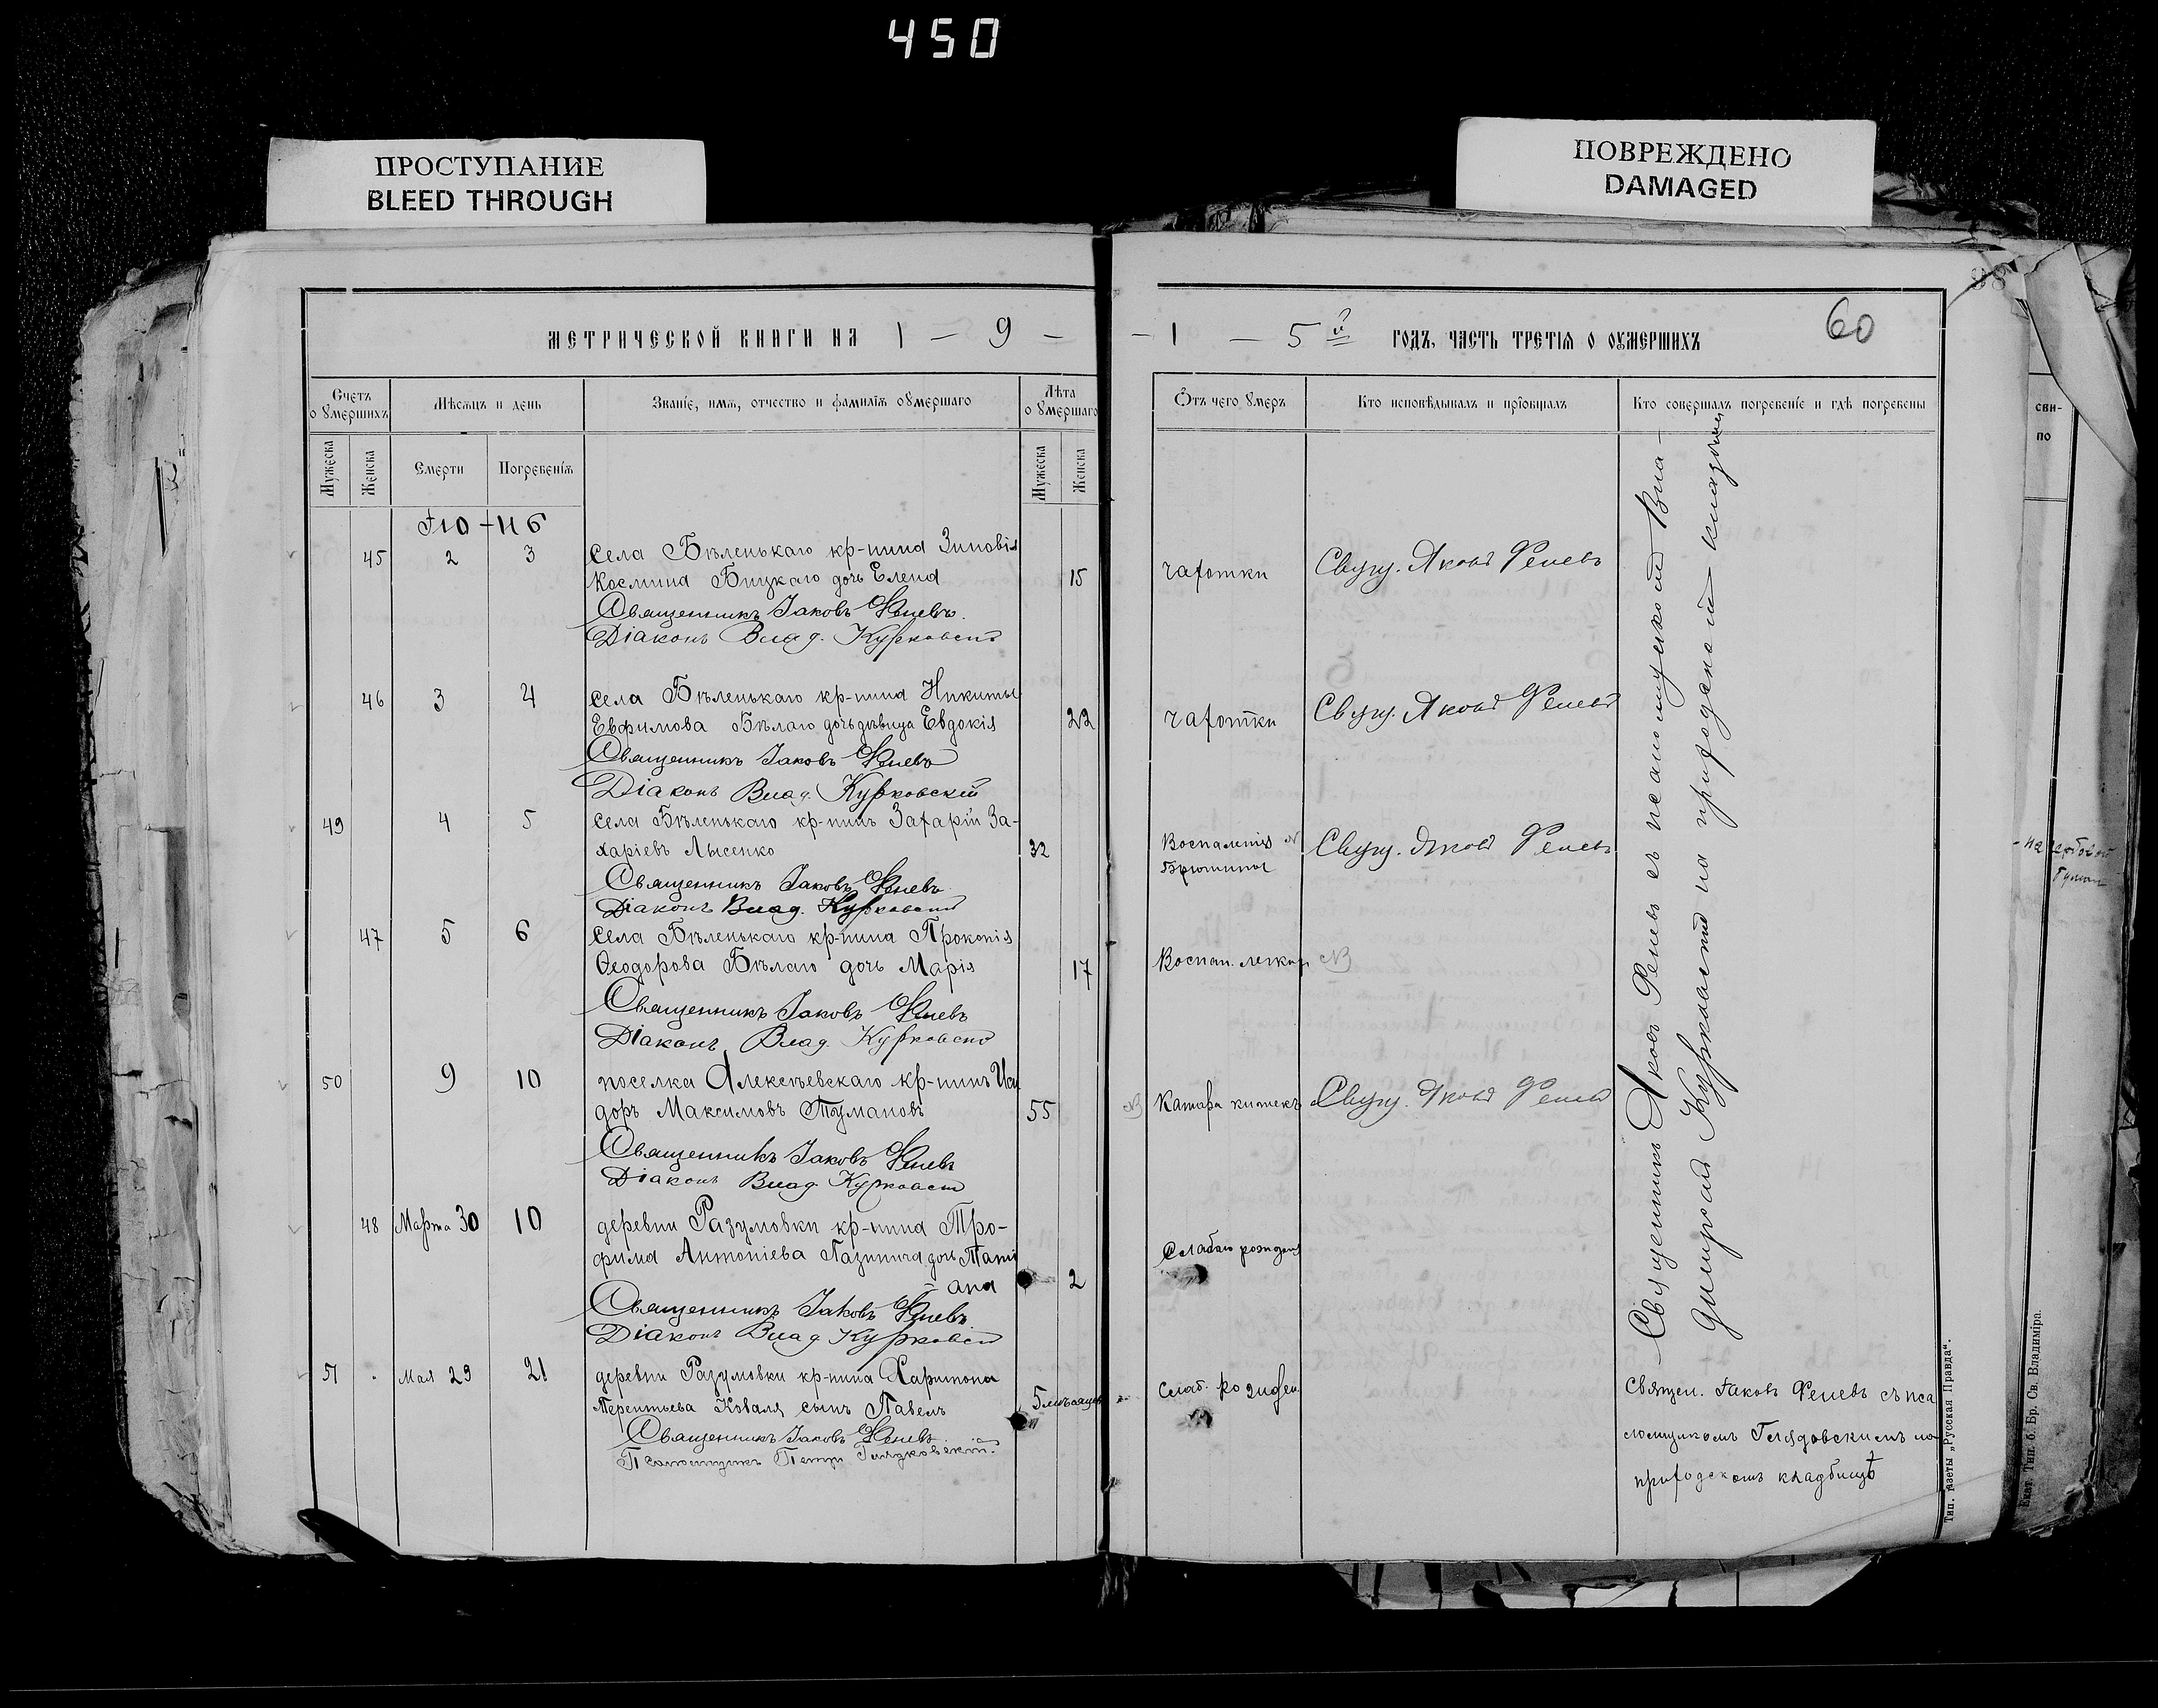 450
ПРОСТУПАНИЕ
BLEED THROUGH
ПОВРЕЖДЕНО
DAMAGED
98
МЕТРИЧЕСКОЙ КНИГИ НА 1 — 9 —
— 1 — 5 й ГОДЪ, ЧАСТЬ ТРЕТІЯ О ОУМЕРШИХЪ
60
Счетъ оумершихъ
Мѣсяцъ и день
Званіе, имя, отчество и фамилія оумершаго
Лѣта оумершаго
Отъ чего умеръ
Кто исповѣдывалъ и пріобщалъ
Кто совершалъ погребеніе и гдѣ погребены
Мужеска
Женска
Смерти
Погребенія
Мужеска
Женска
Iю-нь
45 2 3 села Бѣленькаго кр-нина Зиновія
Космина Бицкаго дочь Елена 15 чахотки Свящ. Яковъ Феневъ
Священникъ Іаковъ Феневъ.
Діаконъ Влад. Курковскій
46 3 4 села Бѣленькаго кр-нина Никиты
Евфимова Бѣлаго дочь дѣвица Евдокія 22 чахотки Свящ. Яковъ Феневъ
Священникъ Іаковъ Феневъ
Діаконъ Влад. Курковскій
49 4 5 села Бѣленькаго кр-нинъ Захарій За-
харіевъ Лысенко 32 Воспаленія Свящ. Яковъ Феневъ
Брюшины
Священникъ Іаковъ Феневъ
Діаконъ Влад. Курковскій
47 5 6 села Бѣленькаго кр-нина Прокопія
Ѳеодорова Бѣлаго дочь Марія 17 Воспал. легких NB
Священникъ Іаковъ Феневъ
Діаконъ Влад. Курковскій
50 9 10 поселка Алексѣевскаго кр-нинъ Иси
доръ Максимовъ Тумановъ 55 NB Катара кишекъ Свящ. Яковъ Феневъ
Священникъ Іаковъ Феневъ
Діаконъ Влад. Курковскій
48 Марта 30 10 деревни Разумовки кр-нина Тро-
фима Антоніева дочь Таті
ана 2 Слабаго рожден
Священникъ Іаковъ Феневъ.
Діаконъ Влад. Курковскій
51 Мая 29 21 деревни Разумовки кр-нина Харитона
Терентьева Коваля сынъ Павелъ 5 мѣсяцев Слаб. рожден
Священникъ Іаковъ Феневъ
Псаломщикъ Петръ Гляздовскій.
Священникъ Яковъ Феневъ съ псаломщикомъ Вла-
димиромъ Курковскимъ на приходскомъ кладбищѣ
Священ. Іаковъ Феневъ съ пса
ломщикомъ на
приходскомъ кладбищѣ
Тип. газеты „Русская Правда“.
сви-
по
Екат. Тип. б. Бр. Св. Владиміра.